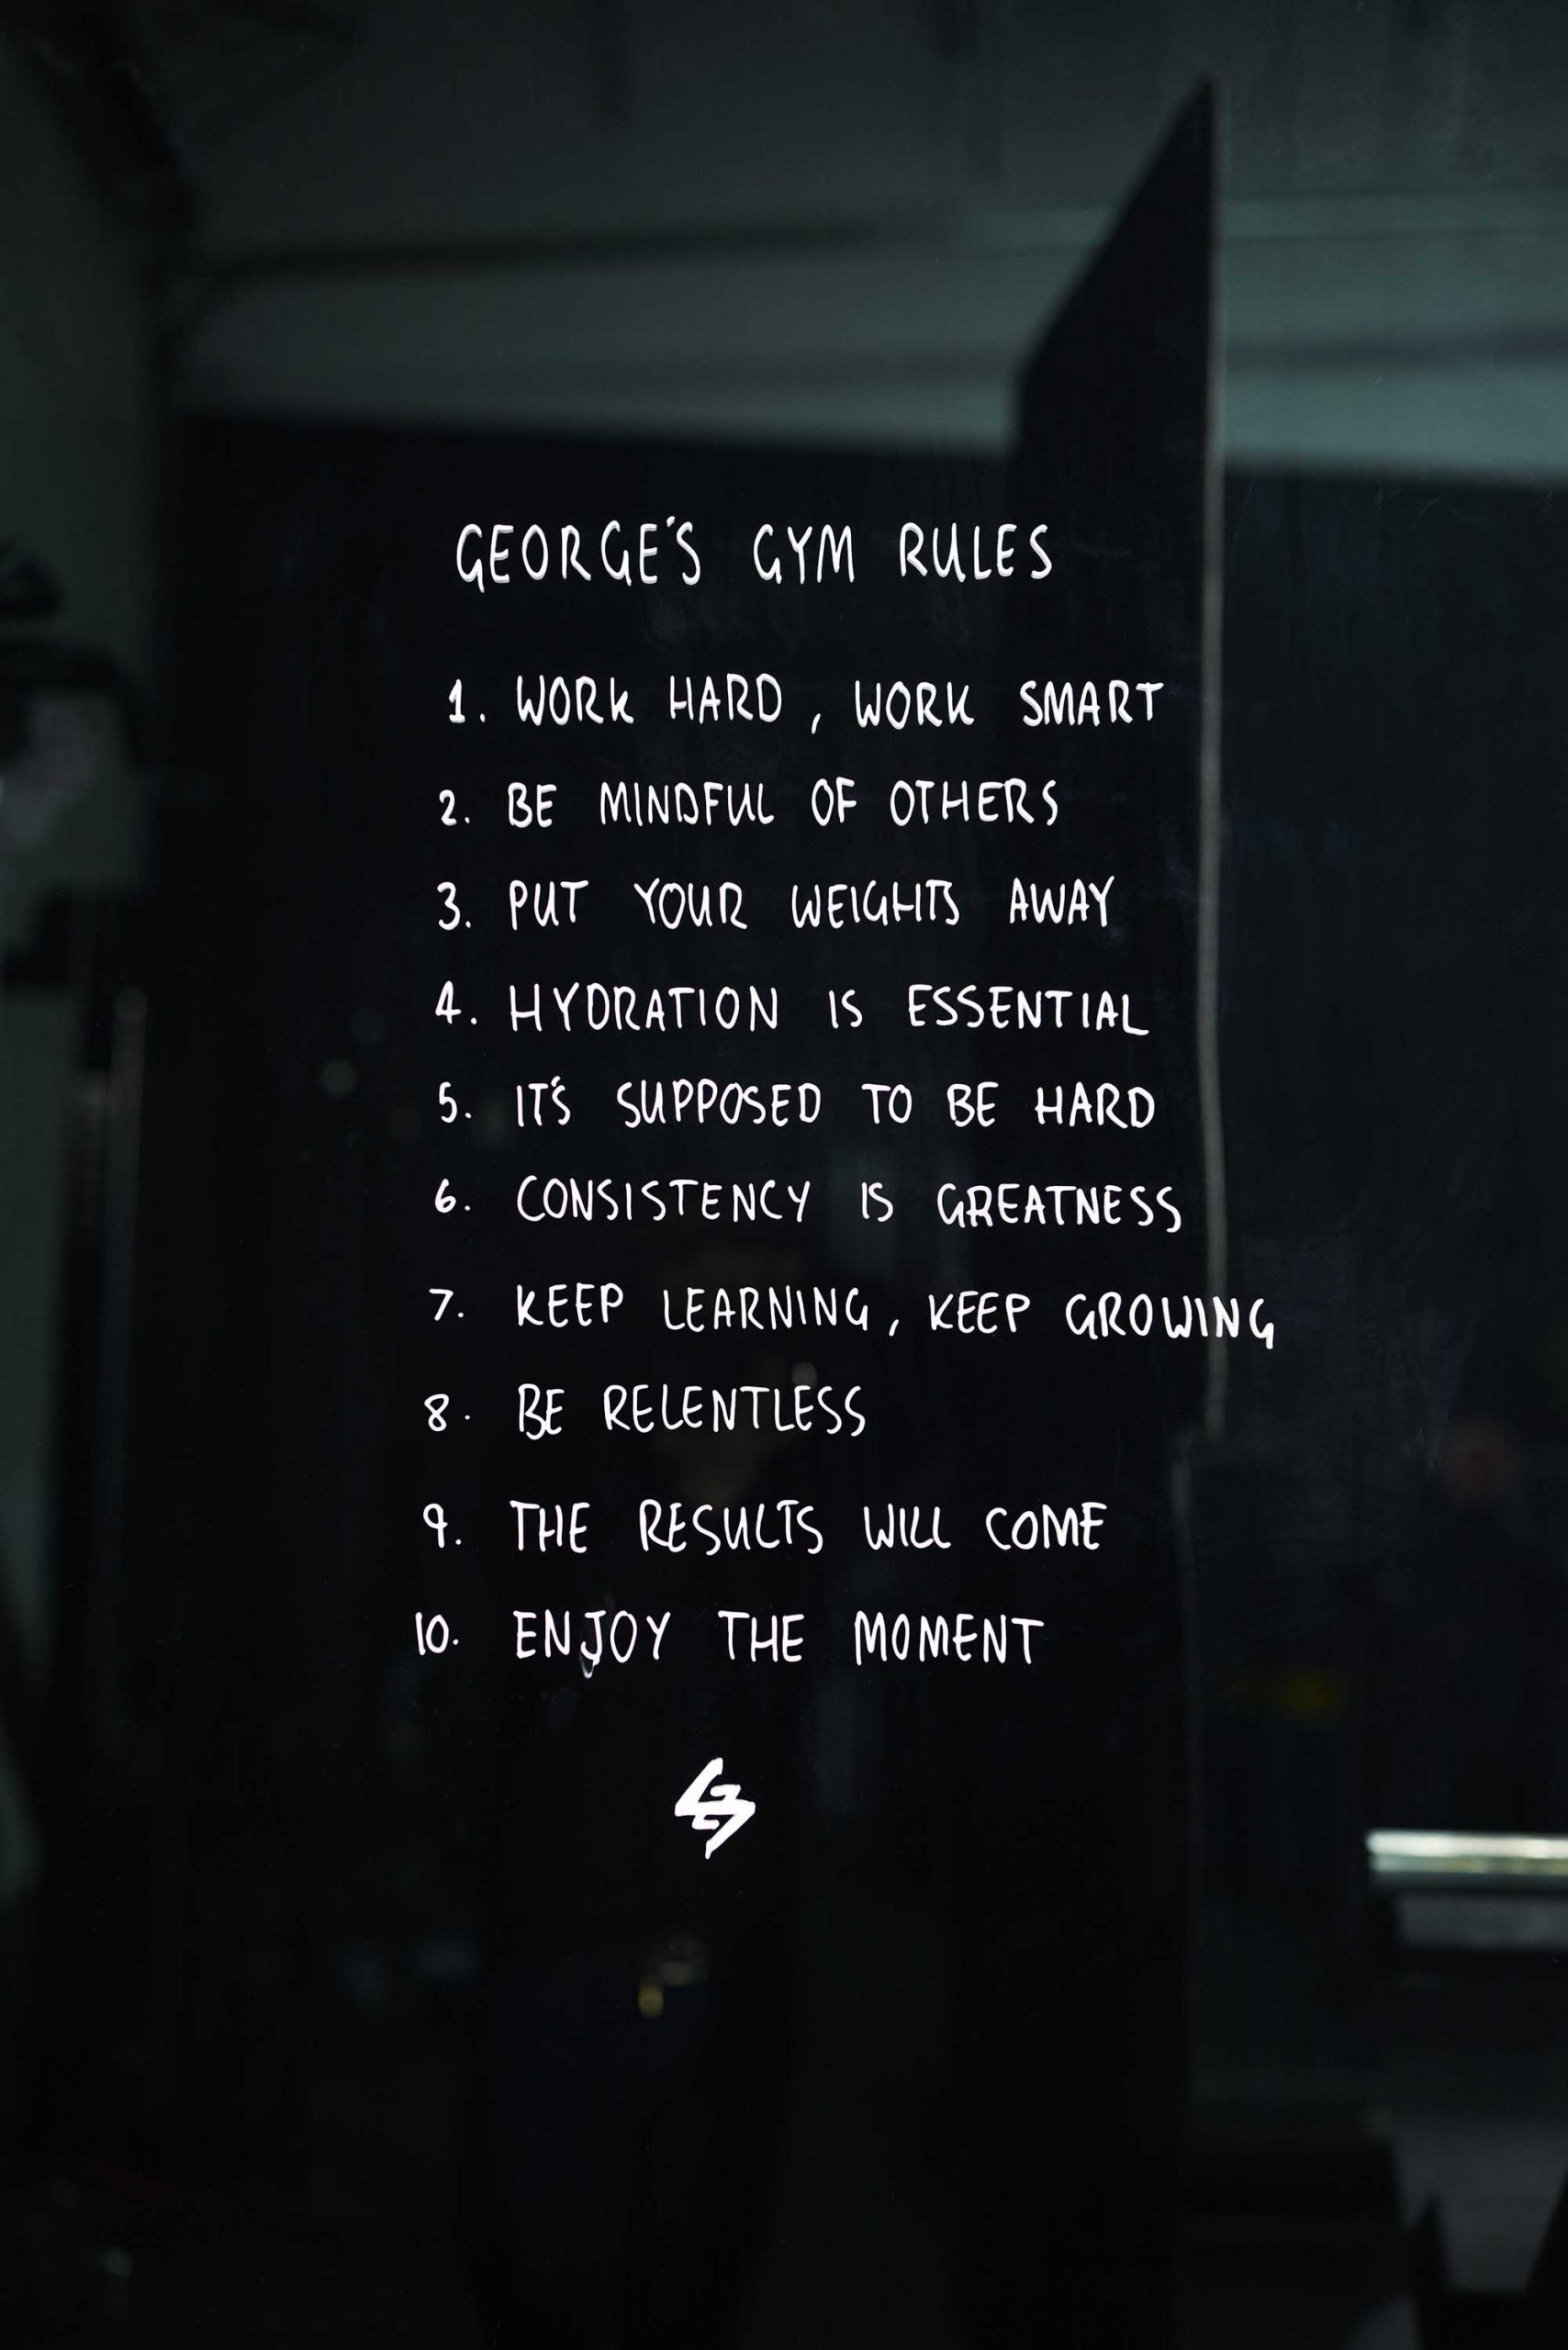 GEORGE'S GYM RULES
1. WORK HARD, WORK SMART
2. BE MINDFUL OF OTHERS
3. PUT YOUR WEIGHTS AWAY
4. HYDRATION IS ESSENTIAL
5. IT'S SUPPOSED TO BE HARD
6. CONSISTENCY IS GREATNESS
7. KEEP LEARNING, KEEP GROWING
8. BE RELENTLESS
9. THE RESULTS WILL COME
10. ENJOY THE MOMENT